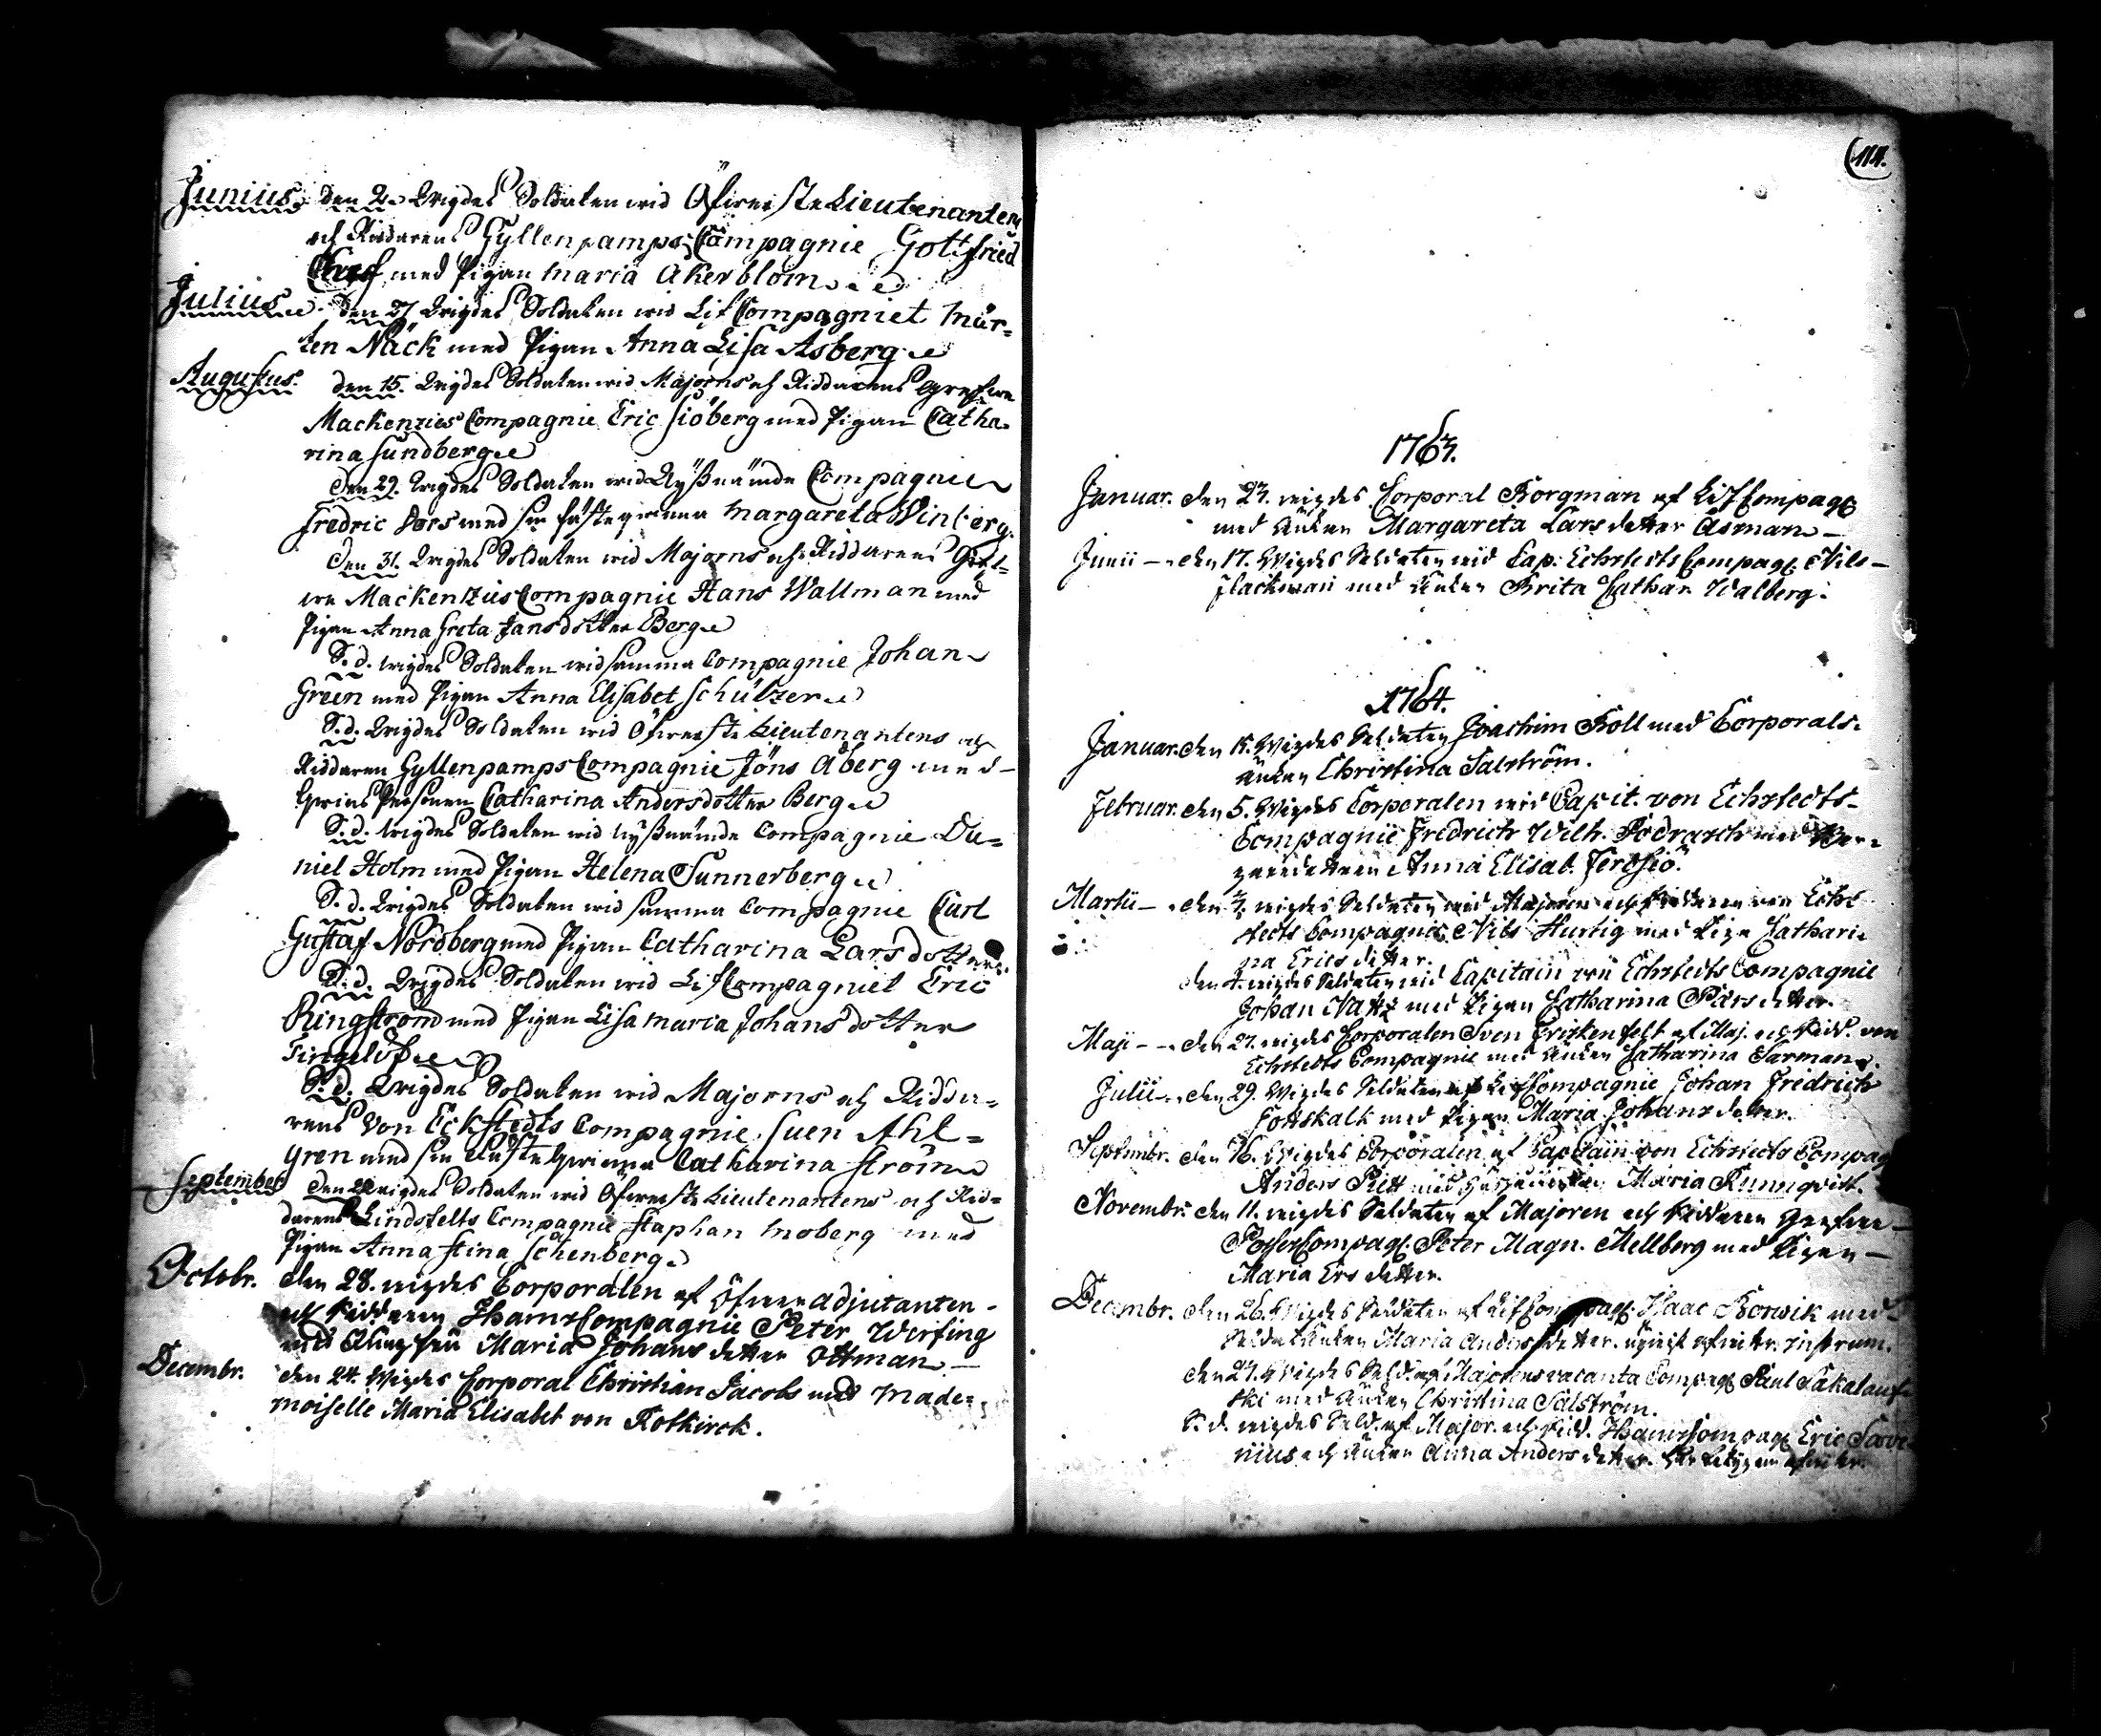 Junius. den 2. Wigdes Soldaten wid Öfwerste Lieutenantens
och Riddarens Gyllenpamps Compagnie Gottfried
med Pigan Maria Akerblom
Julius. den 27. Wigdes Soldaten wid Lif Compagniet Mår-
ten Näck med Pigan Anna Lisa Asberg
Augustus. den 15. Wigdes Soldaten wid Majorns och Riddarens Grefwe
Mackenzies Compagnie Eric Siöberg med Pigan Catha-
rina Sundberg
den 29. wigdes Soldaten wid Compagnie
Fredric Dors med sin fästeqwinna Margareta Winberg.
den 31. Wigdes Soldaten wid Majorns och Riddarens Gref-
we Mackenzies Compagnie Hans Wallman med
Pigan Anna Greta Jansdotter Berg
S. d. wigdes Soldaten wid samma Compagnie Johan
Green med Pigan Anna Elisabet Schützer
S. d. Wigdes Soldaten wid Öfwerste Lieutenantens och
Riddaren Gyllenpamps Compagnie Jöns Åberg med
Personen Catharina Andersdotter Berg
S. d. wigdes Soldaten wid Compagnie Da-
niel Holm med Pigan Helena Sunnerberg
S. d. Wigdes Soldaten wid samma Compagnie Carl
Gustaf Nordberg med Pigan Catharina Larsdotter
S. d. Wigdes Soldaten wid Lif Compagniet Eric
Ringström med Pigan Lisa Maria Johansdotter
Tingelöf
S. d. Wigdes Soldaten wid Majorns och Ridda-
rens Von Eckstedts Compagnie Suen Ahl-
gren med sin Catharina Ström
September den wigdes Soldaten wid Öfwerste Lieutenantens och Rid-
darens Lindsfelts Compagnie Staphan Moberg med
Pigan Anna Stina Schenberg
Octobr. den 28. wigdes Corporalen af Öfwer adjutanten
och Riddaren Compagnie Peter Werfing
med Maria Johansdotter Ottman
Decembr. den 24. Wigdes Corporal Christian Jacobs med Made-
moiselle Maria Elisabet von Rotkirck.
(114.
1763.
Januar. den 23. wigdes Corporal Borgman af Lif Compag.
med änkan Margareta Larsdotter Åsman
Junii den 17. Wigdes Soldaten wid Cap. Echstedts Compag. Nils
Flackman med änkan Brita Cathar. Walberg.
1764.
Januar. den 15. Wigdes Soldaten Joachim Boll med Corporals-
änkan Christina Salström.
Februar. den 5. Wigdes Corporalen wid Capit. von Echstedts
Compagnie Fredrich Wilh. Podrasch med
Anna Elisab. Forssiö.
Martii den wigdes Soldaten wid Majoren och Riddaren von Echs-
stedts Compagnie Nils Hurtig med Pigan Cathari-
na Ericsdotter.
den 4. wigdes Soldaten wid Capitain von Echstedts Compagnie
Johan Nattz med Pigan Catharina Pärsdotter.
Maji den 27. wigdes Corporalen Sven Friskenfelt af Maj. och Ridd. von
Echstedts Compagnie med änkan Catharina Särman.
Julii den 29. Wigdes Soldaten af Lif Compagnie Johan Fredrich
Gottskalk med Pigan Maria Johansdotter.
Septembr. den 16. Wigdes Corporalen af Captain von Echstedts Compag.
Anders Piett med Maria Runnqvist.
Novembr. den 11. wigdes Soldaten af Majoren och Riddaren Grefwe
Posses Compag. Peter Magn. Mellberg med Pigan
Maria Ersdotter.
Decembr. den 26. Wigdes Soldaten af Lif Compag. Isaac Borwik med
Soldatänkan Maria Andersdotter.
den 27. Wigdes Sold. af Majorens vacanta Compag. Paul Sakalauf-
ski med änkan Christina Salström.
S. d. wigdes Sold. af Major. och Ridd. Compag. Eric Save-
nius och änkan Anna Andersdotter.